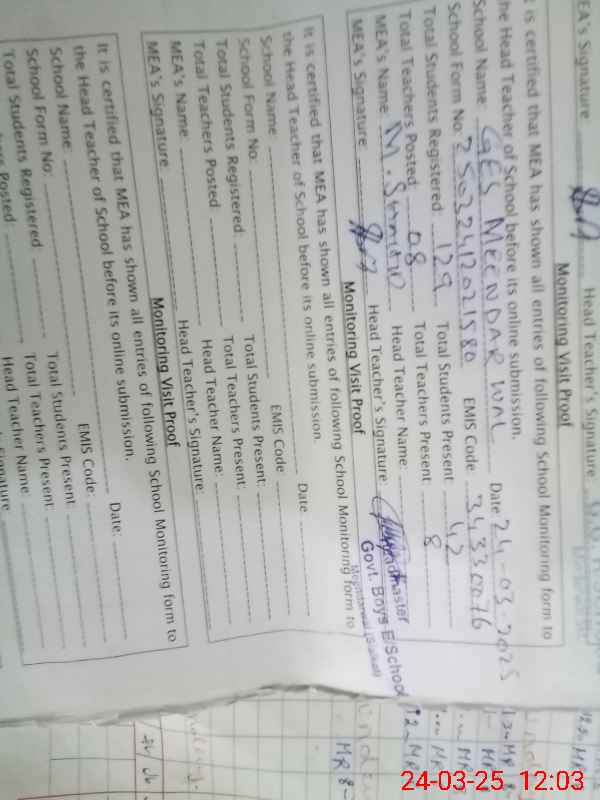 MEA's Signature Head Teacher's Signature
Monitoring Visit Proof
It is certified that MEA has shown all entries of following School Monitoring form to
the Head Teacher of School before its online submission.
School Name: GES MEENDAR WAL Date: 24-03-2025
School Form No: 25032412021580 EMIS Code 34330076
Total Students Registered 129 Total Students Present: 42
Total Teachers Posted: 08 Total Teachers Present: 8
MEA's Name: M. Head Teacher Name:
MEA's Signature: Head Teacher's Signature:
Headmaster
Govt. Boys E/School
Monitoring Visit Proof
It is certified that MEA has shown all entries of following School Monitoring form to
the Head Teacher of School before its online submission.
School Name: Date:
School Form No: EMIS Code:
Total Students Registered: Total Students Present:
Total Teachers Posted: Total Teachers Present:
MEA's Name: Head Teacher Name:
MEA's Signature: Head Teacher's Signature:
Monitoring Visit Proof
It is certified that MEA has shown all entries of following School Monitoring form to
the Head Teacher of School before its online submission.
School Name: Date:
School Form No: EMIS Code:
Total Students Registered: Total Students Present:
Teachers Posted: Total Teachers Present:
Head Teacher Name:
Signature
MR 8-
24-03-25 12:03